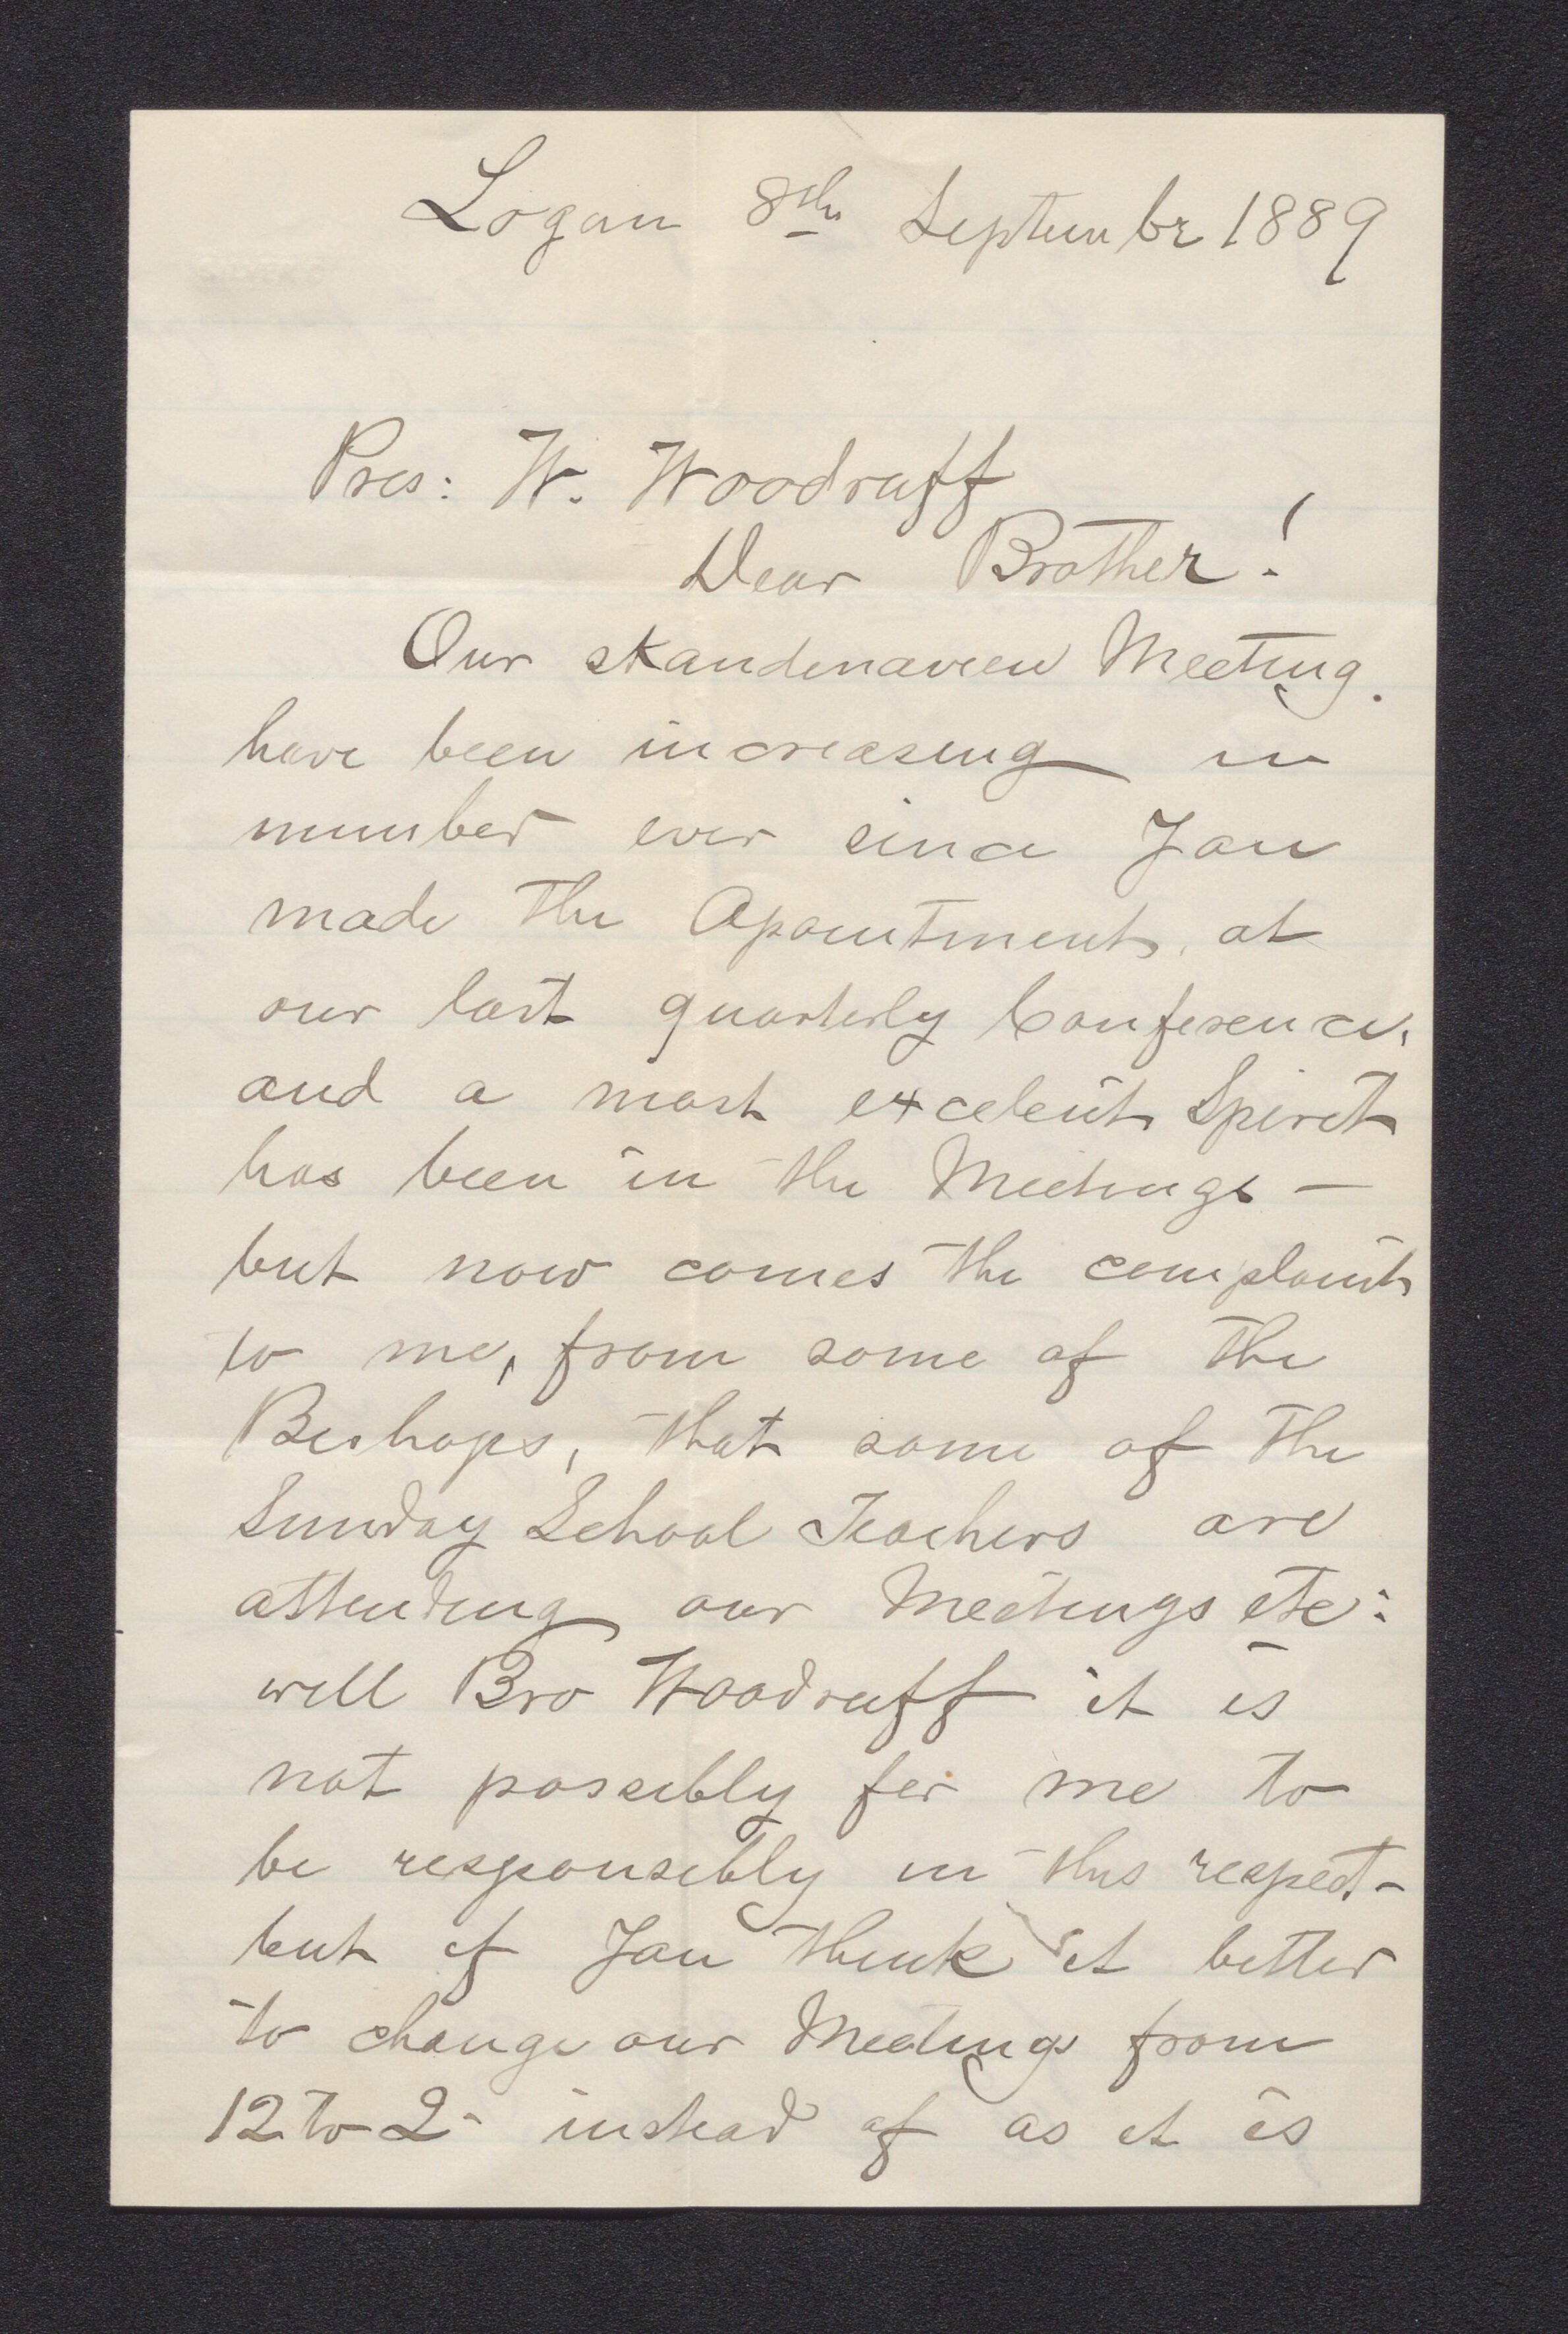 Logan 8th September 1889
Pres: W. Woodruff
Dear Brother!
Our skandenavien Meeting.
have been increasing in
number ever since You
made the Apointment, at
our last quarterly Conference,
and a most excelent Spirit
has been in the Meetings —
but now comes the complaint
to me, from some of the
Bishops, that some of the
Sunday School Teachers are
attending our Meetings etc:
well Bro Woodruff it is
not possibly for me to
be responsibly in this respect -
but if You think it better
to change our Meetings from
12 to 2 - instead of as it is